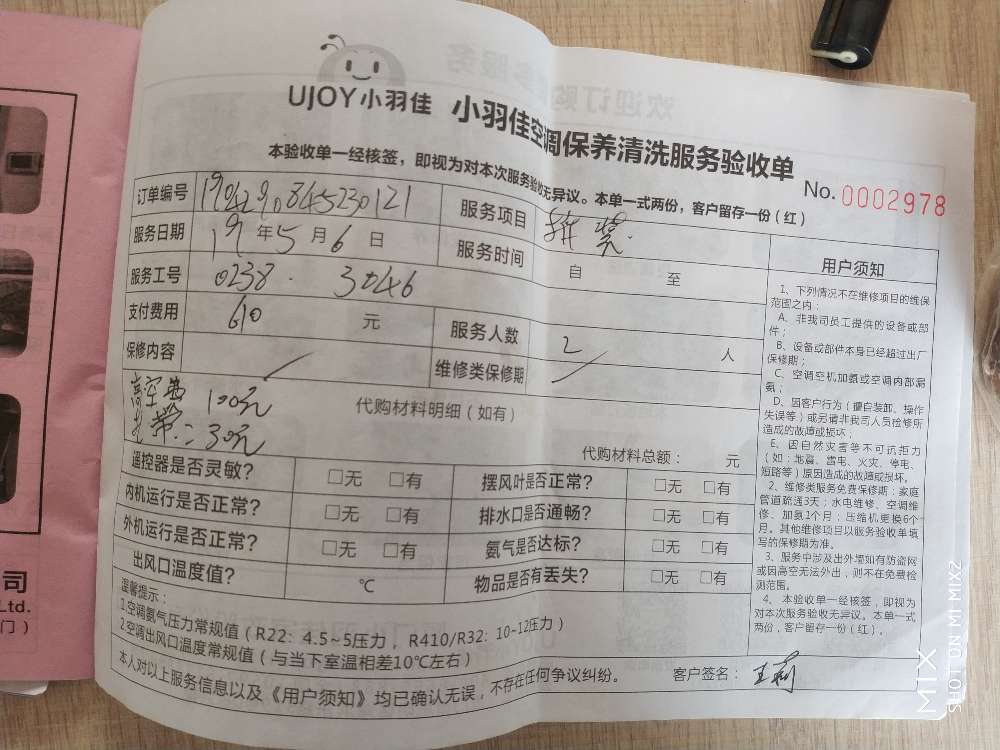 UJOY小羽佳 小羽佳空调保养清洗服务验收单
本验收单一经核签，即视为对本次服务验收无异议。本单一式两份，客户留存一份（红）
No. 0002978
订单编号 190429084523 0121 服务项目
服务日期 19年5月6日 服务时间 自 至
服务工号 0238 . 3046
支付费用 610 元 服务人数 2 人
保修内容 维修类保修期
高空费 100元 代购材料明细（如有）
30元
代购材料总额： 元
遥控器是否灵敏？ □无 □有 摆风叶是否正常？ □无 □有
内机运行是否正常？ □无 □有 排水口是否通畅？ □无 □有
外机运行是否正常？ □无 □有 氨气是否达标？ □无 □有
出风口温度值？ ℃ 物品是否有丢失？ □无 □有
温馨提示：
1.空调氨气压力常规值（R22：4.5~5压力，R410/R32：10~12压力）
2.空调出风口温度常规值（与当下室温相差10℃左右）
本人对以上服务信息以及《用户须知》均已确认无误，不存在任何争议纠纷。 客户签名：王莉
用户须知
1、下列情况不在维修项目的维保
范围之内：
A、非我司员工提供的设备或部
件；
B、设备或部件本身已经超过出厂
保修期；
C、空调空机加氨或空调内部漏
氨；
D、因客户行为（擅自装卸、操作
失误等）或另请非我司人员检修所
造成的故障或损坏；
E、因自然灾害等不可抗拒力
（如：地震、雷电、火灾、停电、
短路等）原因造成的故障或损坏。
2、维修类服务免费保修期：家庭
管道疏通3天；水电维修、空调维
修、加氨1个月；压缩机更换6个
月。其他维修项目以服务验收单填
写的保修期为准。
3、服务中涉及出外墙如有防盗网
或因高空无法外出，则不在免费检
测范围。
4、本验收单一经核签，即视为
对本次服务验收无异议。本单一式
两份，客户留存一份（红）。
司
Ltd.
门）
MIX
SHOT ON MI MIX2